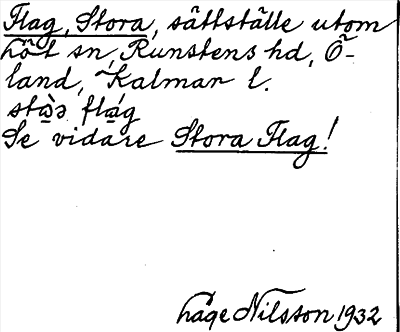 Flag, Stora, sättställe utom
Löt sn, Runstens hd, Ö-
land, Kalmar l.
stɷ̀ɜ flɷ́g
Se vidare Stora Flag!
Låge Nilsson 1932